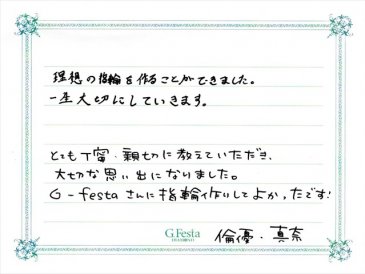 理想の指輪を作ることができました。
一生大切にしていきます。
とても丁寧・親切に教えていただき、
大切な思い出になりました。
G-festaさんに指輪作りしてよかったです!
G.Festa
倫優・真奈